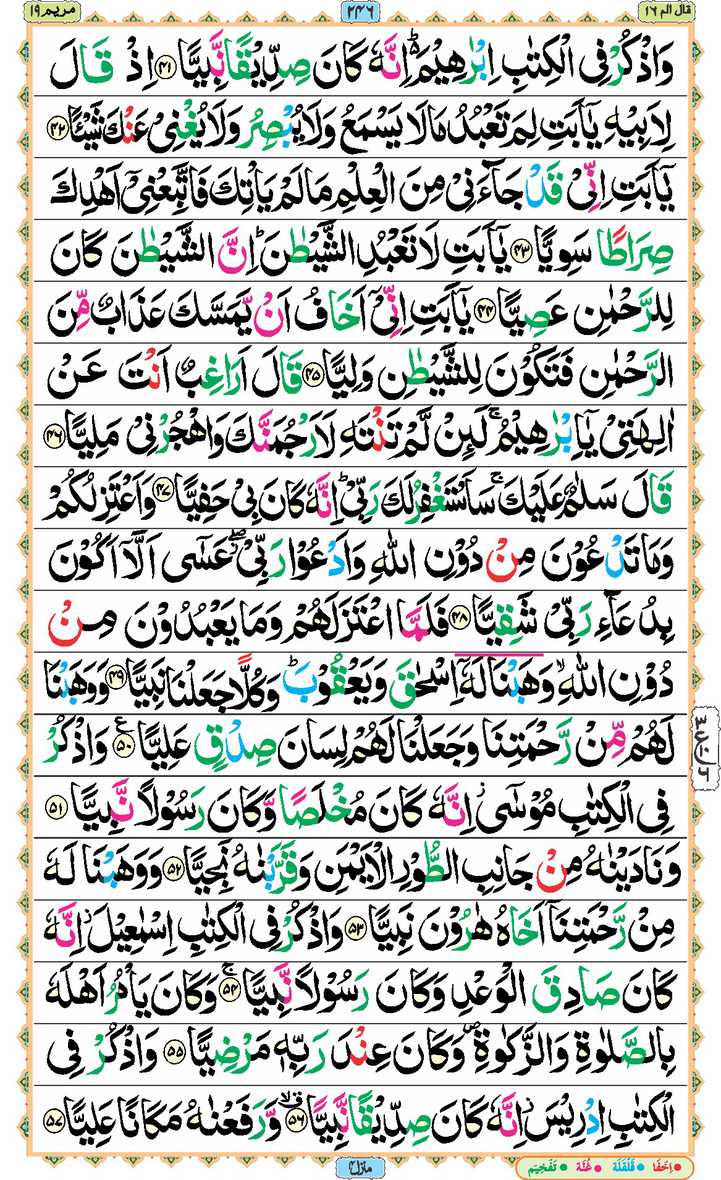 قال الم ١٦
٤٤٦
مريم ١٩
وَاذْكُرْ فِی الْكِتٰبِ اِبْرٰهِیْمَ۬ؕ اِنَّهٗ كَانَ صِدِّیْقًا نَّبِیًّا ﴿۴۱﴾ اِذْ قَالَ
لِاَبِیْهِ یٰۤاَبَتِ لِمَ تَعْبُدُ مَا لَا یَسْمَعُ وَلَا یُبْصِرُ وَلَا یُغْنِیْ عَنْكَ شَیْـًٔا ﴿۴۲﴾
یٰۤاَبَتِ اِنِّیْ قَدْ جَآءَنِیْ مِنَ الْعِلْمِ مَا لَمْ یَاْتِكَ فَاتَّبِعْنِیْۤ اَهْدِكَ
صِرَاطًا سَوِیًّا ﴿۴۳﴾ یٰۤاَبَتِ لَا تَعْبُدِ الشَّیْطٰنَ ؕ اِنَّ الشَّیْطٰنَ كَانَ
لِلرَّحْمٰنِ عَصِیًّا ﴿۴۴﴾ یٰۤاَبَتِ اِنِّیْۤ اَخَافُ اَنْ یَّمَسَّكَ عَذَابٌ مِّنَ
الرَّحْمٰنِ فَتَكُوْنَ لِلشَّیْطٰنِ وَلِیًّا ﴿۴۵﴾ قَالَ اَرَاغِبٌ اَنْتَ عَنْ
اٰلِهَتِیْ یٰۤاِبْرٰهِیْمُ ۚ لَىِٕنْ لَّمْ تَنْتَهِ لَاَرْجُمَنَّكَ وَاهْجُرْنِیْ مَلِیًّا ﴿۴۶﴾
قَالَ سَلٰمٌ عَلَیْكَ ۚ سَاَسْتَغْفِرُ لَكَ رَبِّیْ ؕ اِنَّهٗ كَانَ بِیْ حَفِیًّا ﴿۴۷﴾ وَاَعْتَزِلُكُمْ
وَمَا تَدْعُوْنَ مِنْ دُوْنِ اللّٰهِ وَاَدْعُوْا رَبِّیْ ۖؗ عَسٰۤی اَلَّاۤ اَكُوْنَ
بِدُعَآءِ رَبِّیْ شَقِیًّا ﴿۴۸﴾ فَلَمَّا اعْتَزَلَهُمْ وَمَا یَعْبُدُوْنَ مِنْ
دُوْنِ اللّٰهِ ۙ وَهَبْنَا لَهٗۤ اِسْحٰقَ وَیَعْقُوْبَ ؕ وَكُلًّا جَعَلْنَا نَبِیًّا ﴿۴۹﴾ وَوَهَبْنَا
لَهُمْ مِّنْ رَّحْمَتِنَا وَجَعَلْنَا لَهُمْ لِسَانَ صِدْقٍ عَلِیًّا ﴿۵۰﴾ ع وَاذْكُرْ
فِی الْكِتٰبِ مُوْسٰۤی ؗ اِنَّهٗ كَانَ مُخْلَصًا وَّكَانَ رَسُوْلًا نَّبِیًّا ﴿۵۱﴾
وَنَادَیْنٰهُ مِنْ جَانِبِ الطُّوْرِ الْاَیْمَنِ وَقَرَّبْنٰهُ نَجِیًّا ﴿۵۲﴾ وَوَهَبْنَا لَهٗ
مِنْ رَّحْمَتِنَاۤ اَخَاهُ هٰرُوْنَ نَبِیًّا ﴿۵۳﴾ وَاذْكُرْ فِی الْكِتٰبِ اِسْمٰعِیْلَ ؗ اِنَّهٗ
كَانَ صَادِقَ الْوَعْدِ وَكَانَ رَسُوْلًا نَّبِیًّا ﴿۵۴﴾ ۚ وَكَانَ یَاْمُرُ اَهْلَهٗ
بِالصَّلٰوةِ وَالزَّكٰوةِ ۪ وَكَانَ عِنْدَ رَبِّهٖ مَرْضِیًّا ﴿۵۵﴾ وَاذْكُرْ فِی
الْكِتٰبِ اِدْرِیْسَ ؗ اِنَّهٗ كَانَ صِدِّیْقًا نَّبِیًّا ﴿۵۶﴾ ۗۙ وَّرَفَعْنٰهُ مَكَانًا عَلِیًّا ﴿۵۷﴾
منزل ۴
اِخفَا قَلْقَلَة غُنَّة تَفْخِيْم